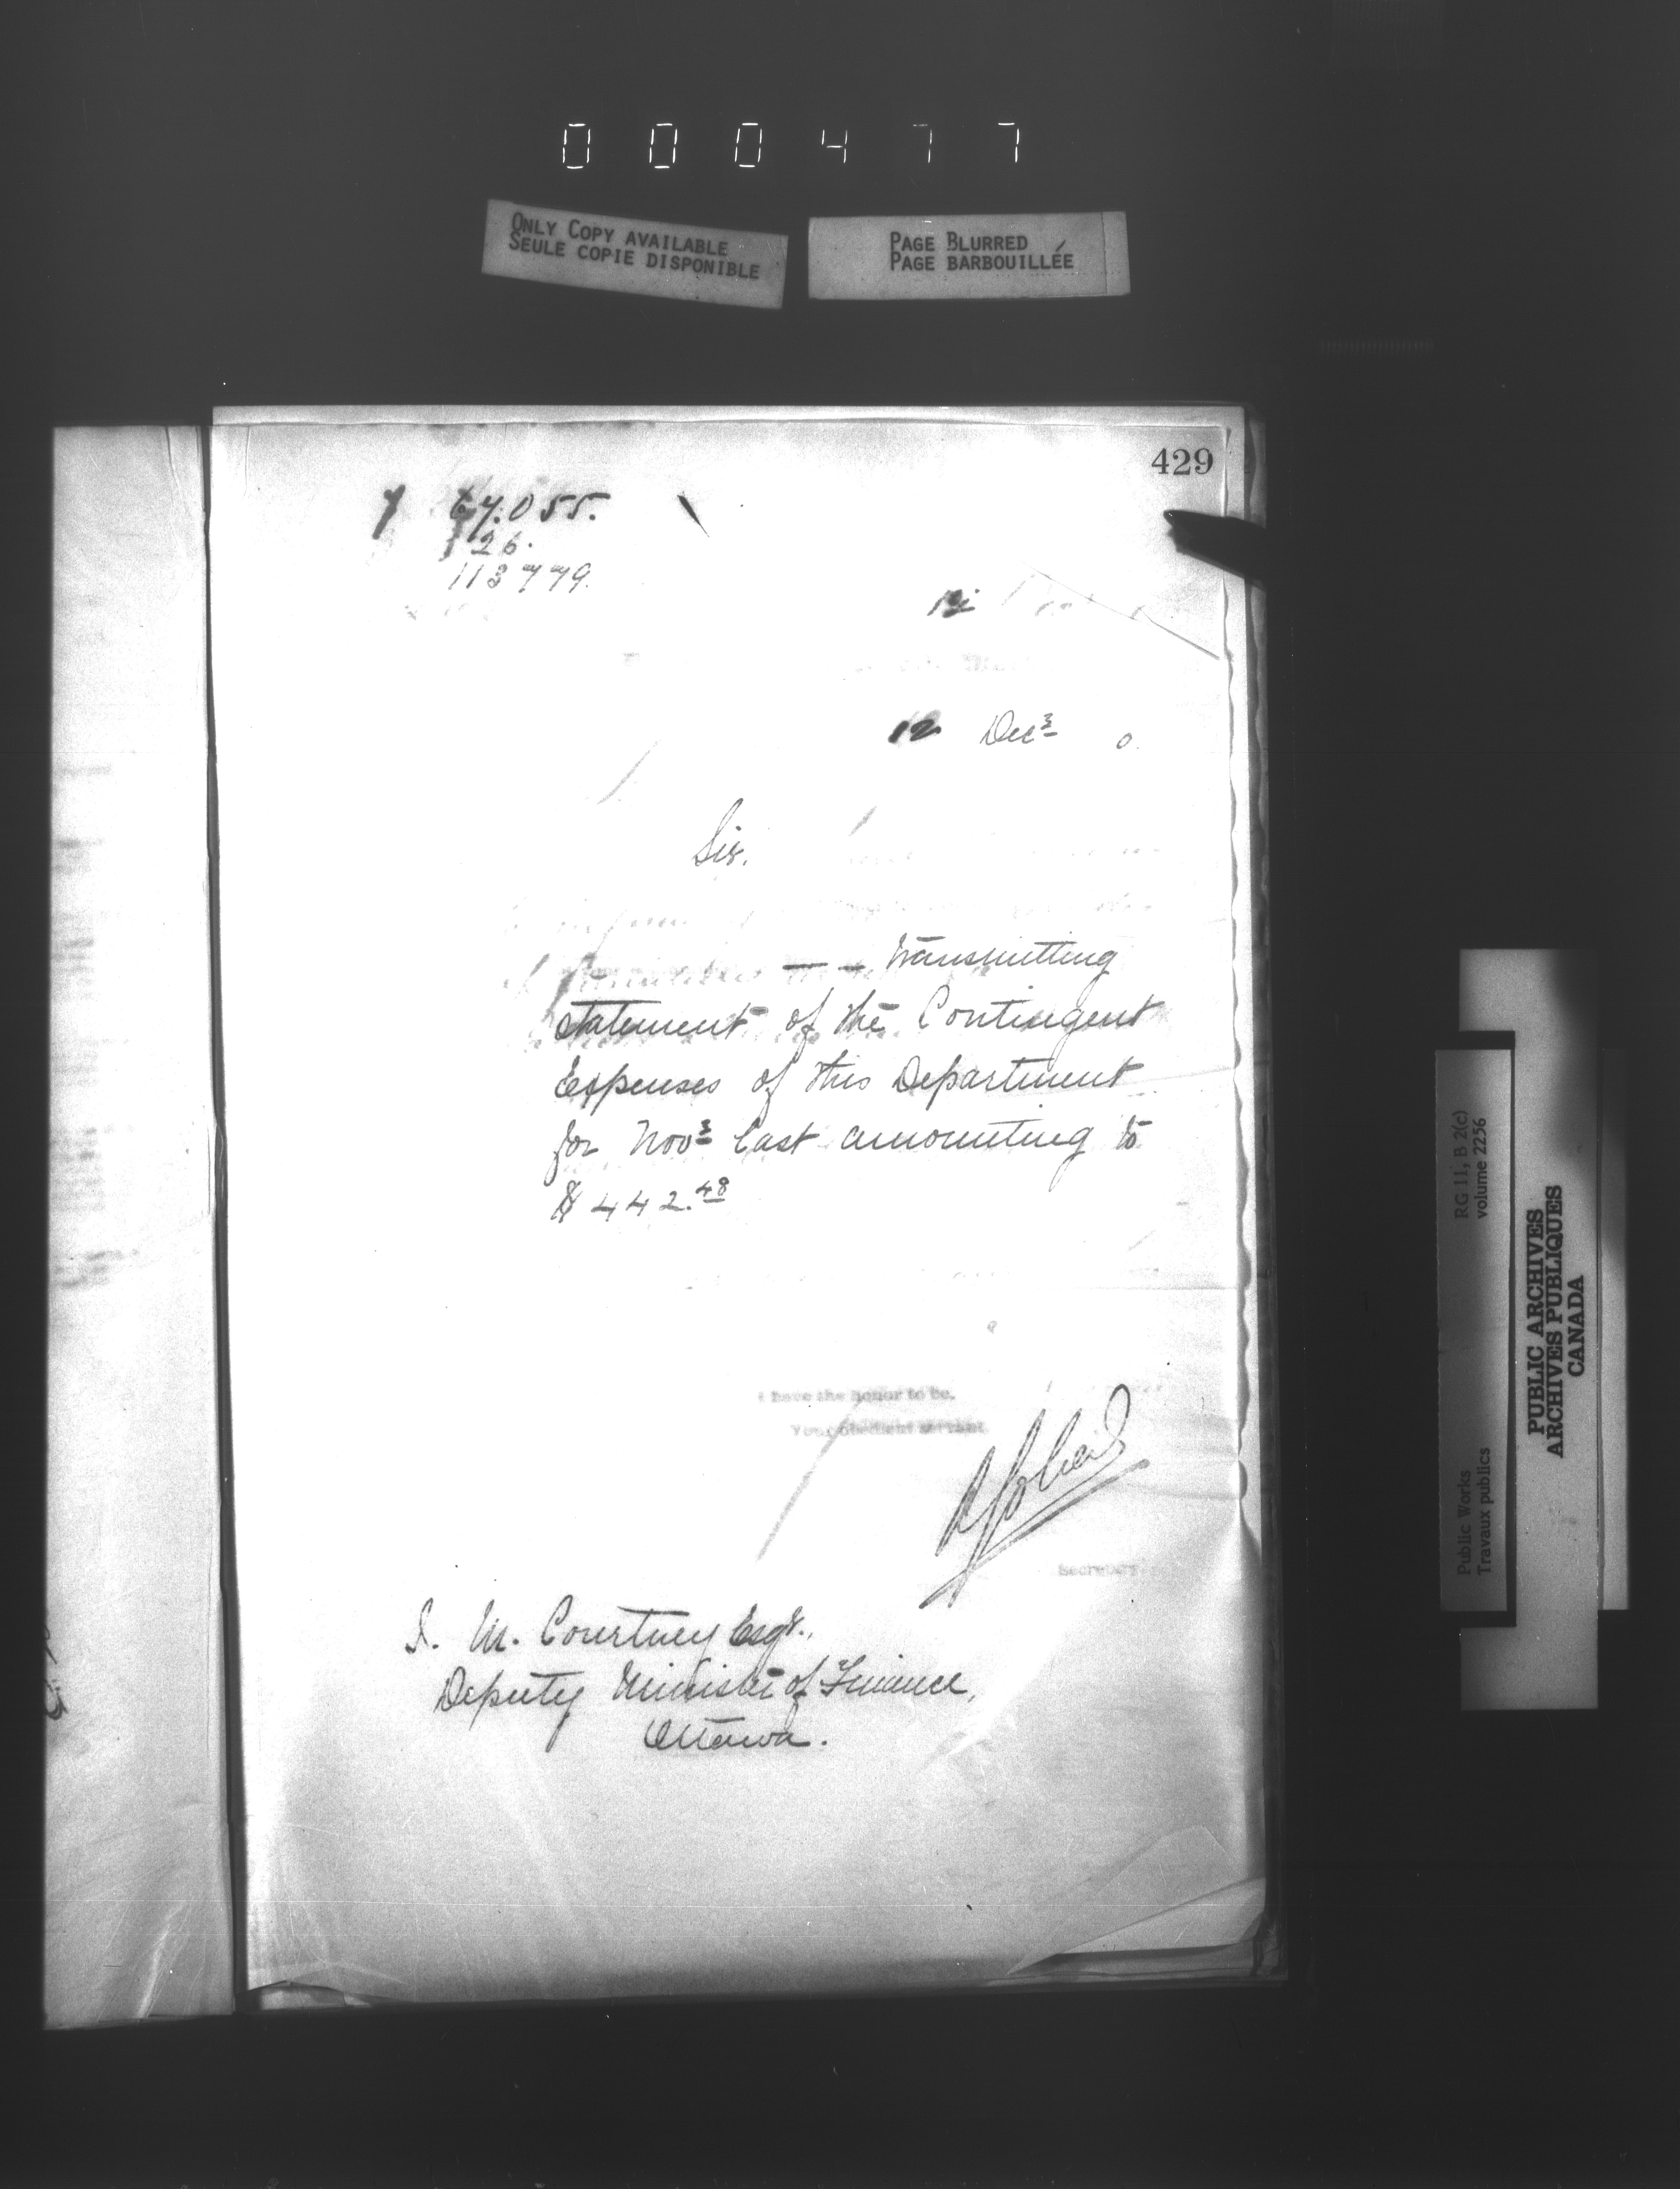 000477
ONLY COPY AVAILABLE
SEULE COPIE DISPONIBLE
PAGE BLURRED
PAGE BARBOUILLÉE
429
67.055.
26.
113779.
12 Decr 0.
Sir.
— — transmitting
statement of the Contingent
Expenses of this Department
for Novr last amounting to
$442.48
I have the honor to be,
Your obedient servant
Secretary
J. M. Courtney Esqr.,
Deputy Minister of Finance,
Ottawa.
RG 11, B 2(c)
volume 2256
Public Works
Travaux publics
PUBLIC ARCHIVES
ARCHIVES PUBLIQUES
CANADA